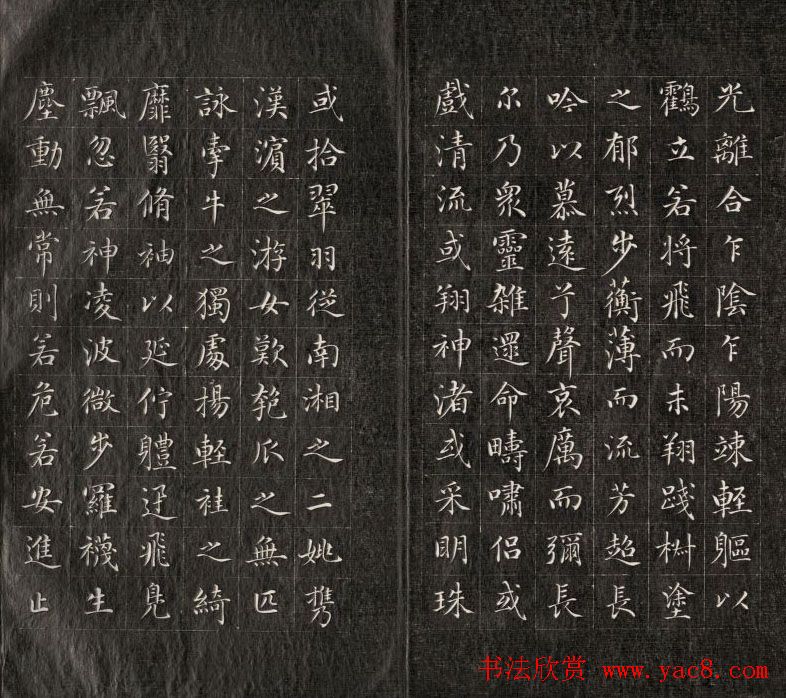 光離合乍陰乍陽竦輕軀以
鸖立若將飛而未翔踐椒塗
之郁烈步蘅薄而流芳超長
吟以慕遠兮聲哀厲而彌長
尔乃眾靈雜遝命疇嘯侶或
戲清流或翔神渚或采明珠
或拾翠羽從南湘之二姚携
漢濱之游女歎匏瓜之無匹
詠牽牛之獨處揚輕袿之綺
靡翳脩袖以延佇軆迅飛鳧
飄忽若神凌波微步羅襪生
塵動無常則若危若安進止
书法欣赏 www.yac8.com